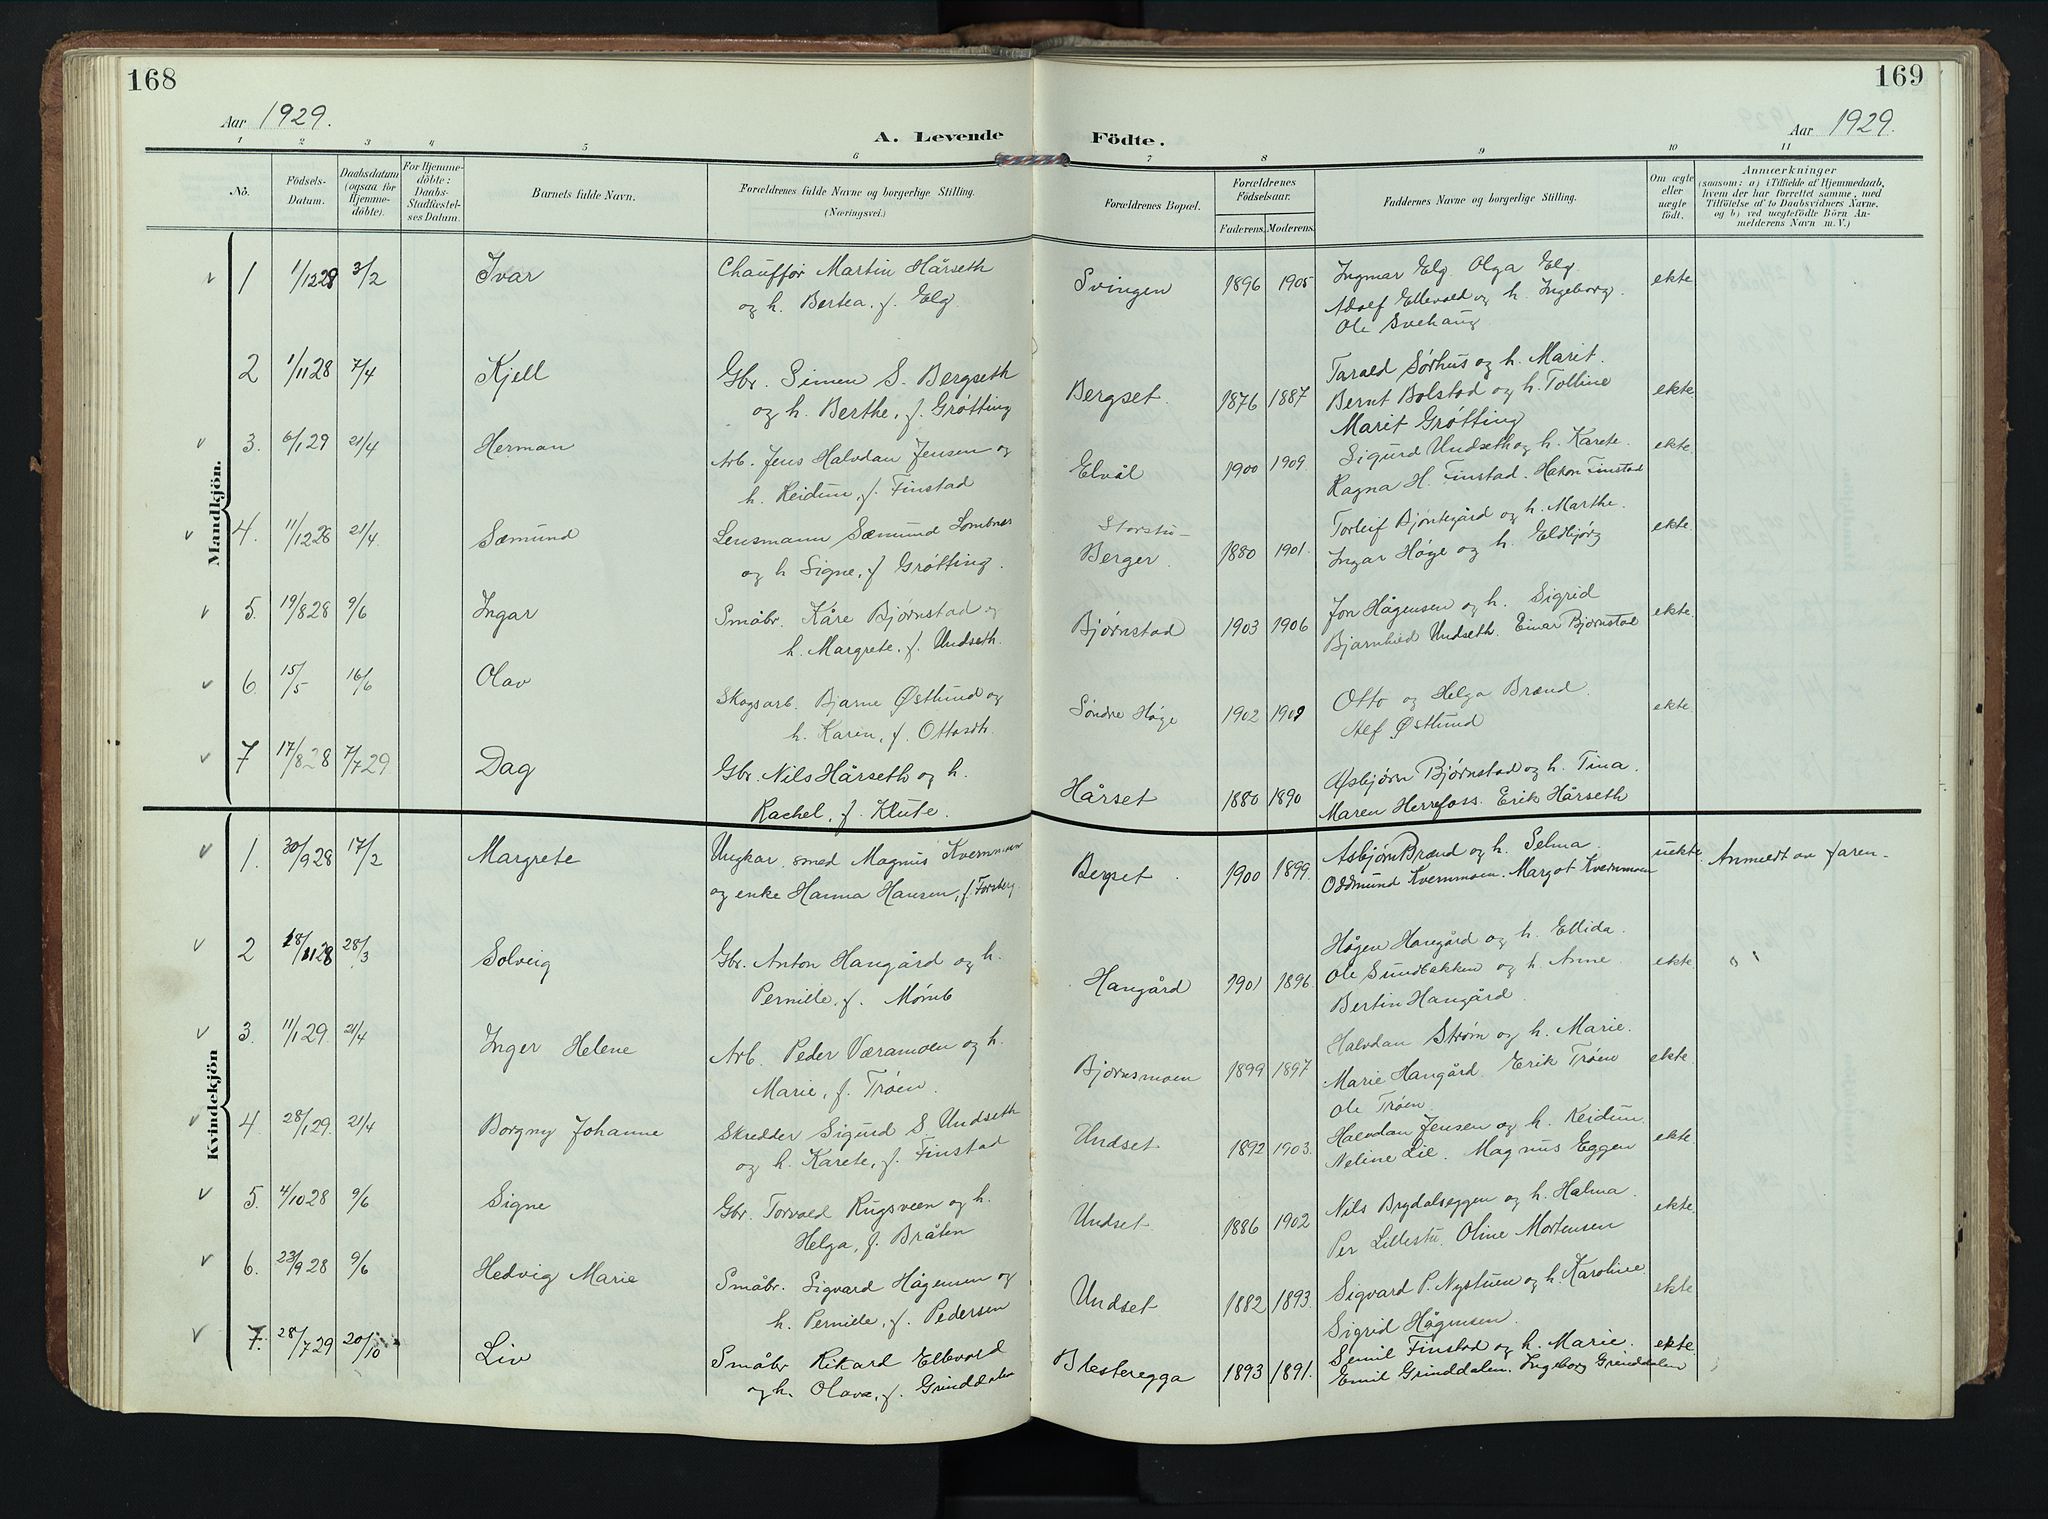 168
169
Aar 1929.
A. Levende Födte.
Aar 1929.
1 2 3 4 5 6 7 8 9 10 11
No.
Födsels-Datum.
Daabsdatum (ogsaa för Hjemmedöbte).
For Hjemmedöbte: Daabs-Stadfæstelses Datum.
Barnets fulde Navn.
Forældrenes fulde Navne og borgerlige Stilling.
(Næringsvei.)
Forældrenes Bopæl.
Forældrenes Födselsaar.
Faderens. Moderens.
Faddernes Navne og borgerlige Stilling.
Om ægte eller uægte födt.
Anmærkninger
(saasom: a) i Tilfælde af Hjemmedaab,
hvem der har forrettet samme, med
Tilföielse af to Daabsvidners Navne.
og b) ved uægtefödte Börn An-
melderens Navn m. V.)
Mandkjön.
1 1/12 28 3/2 Ivar Chauffør Martin Hårseth Svingen 1896 1905 Ingmar Elg. Olga Elg. ekte
og h. Bertea, f. Elg. Adolf Ellevold og h. Ingeborg.
Ole Svehaug
2 1/11 28 7/4 Kjell Gbr. Simen S. Bergseth Bergset. 1876 1887 Tarald Sørhus og h. Marit. ekte
og h. Berthe, f. Grøtting Bernt Bolstad og h. Tolline
Marit Grøtting
3. 6/1 29 21/4 Herman Arb. Jens Halvdan Jensen og Elvål 1900 1909. Sigurd Undseth og h. Karete. ekte
h. Reidun, f. Finstad Ragna H. Finstad. Håkon Finstad
4. 11/12 28 21/4 Sæmund Lensmann Sæmund Lombnes Storstu-
og h Signe, f. Grøtting. Berger. 1880 1901. Torleif Bjøntegård og h. Marthe. ekte.
Ingar Høge og h. Eldbjørg
5. 19/8 28 9/6 Ingar Småbr. Kåre Bjørnstad og Bjørnstad 1903 1906 Jon Hågensen og h. Sigrid ekte.
h. Margrete, f. Undseth. Bjarnhild Undseth. Einar Bjørnstad
6. 15/5 16/6 Olav Skogsarb. Bjarne Østlund og Søndre Høge 1902 1909 Otto og Helga Brænd. ekte.
h. Karen, f. Ottosdt. Alf Østlund
7 17/8 28 7/7 29 Dag Gbr. Nils Hårseth og h. Hårset 1880 1890 Asbjørn Bjørnstad og h. Tina.
Rachel, f. Klute. Maren Herrefoss. Erik Hårseth
Kvindekjön
1. 30/9 28 17/2 Margrete Ungkar, smed Magnus Kvernmoen Bergset. 1900 1899. Asbjørn Brænd og h. Selma. uekte. Anmeldt av faren-
og enke Hanna Hansen, f. Forsberg. Oddmund Kvernmoen. Margot Kvernmoen
2 18/11 28 28/3 Solveig Gbr. Anton Hangård og h. Hangård 1901 1896. Hågen Hangård og h. Ellida. ekte.
Pernille, f. Mømb Ole Sundbakken og h. Anne.
Bertin Hangård.
3. 11/1 29. 21/4 Inger Helene Arb. Peder Væramoen og h. Bjørnsmoen 1899 1897 Halvdan Strøm og h. Marie. ekte.
Marie, f. Trøen. Marie Hangård. Erik Trøen
Ole Trøen.
4. 28/1 29. 21/4 Borgny Johanne Skredder Sigurd S Undseth Undset 1892 1903. Halvdan Jensen og h. Reidun. ekte.
og h. Karete, f. Finstad Neline Lie. Magnus Eggen
5. 4/10 28 9/6 Signe Gbr. Torvald Rugsveen og h. Undset. 1886 1902 Nils Brydalseggen og h. Halma. ekte.
Helga, f. Bråten Per Lillestu. Oline Mortensen
6. 23/9 28 9/6 Hedvig Marie Småbr. Sigvard Hågensen og Undset 1882 1893. Sigvard P. Nystuen og h. Karoline. ekte.
h. Pernille, f. Pedersen Sigrid Hågensen.
7. 28/7 29 20/10 Liv Småbr Rikard Ellevold Blesteregga 1893 1891. Semil Finstad og h. Marie. ekte.
og h. Olava, f. Grinddalen Emil Grinddalen. Ingeborg Grinddalen